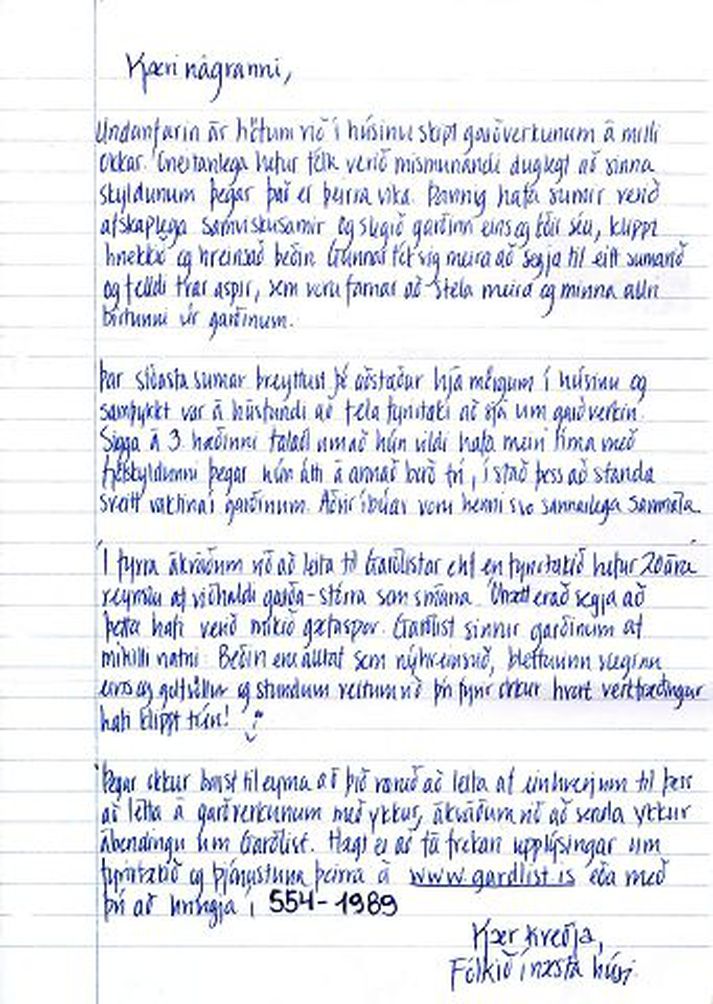 Kæri nágranni,
Undanfarin ár höfum við í húsinu skipt garðverkunum á milli
okkar. Óneitanlega hefur fólk verið mismunandi duglegt að sinna
skyldunum þegar það er þeirra vika. Þannig hafa sumir verið
afskaplega samviskusamir og slegið garðinn eins og óðir séu, klippt
hnekkið og hreinsað beðin. Gunnar tók sig meira að segja til eitt sumarið
og felldi tvær aspir, sem voru farnar að stela meira og minna allri
birtunni úr garðinum.
Þar síðasta sumar breyttust þó aðstæður hjá mörgum í húsinu og
samþykkt var á húsfundi að fela fyrirtæki að sjá um garðverkin.
Sigga á 3. hæðinni talaði um að hún vildi hafa meiri tíma með
fjölskyldunni þegar hún ætti á annað borð frí, í stað þess að standa
sveitt vaktina í garðinum. Aðrir íbúar voru henni svo sannarlega sammála.
Í fyrra ákváðum við að leita til Garðlistar ehf en fyrirtækið hefur 20 ára
reynslu af viðhaldi garða - stórra sem smárra. Óhætt er að segja að
þetta hafi verið mikið gæfuspor. Garðlist sinnir garðinum af
mikilli natni. Beðin eru alltaf sem nýhreinsuð, bletturinn sleginn
eins og golfvöllur og stundum veltum við því fyrir okkur hvort verkfræðingur
hafi klippt trén!
Þegar okkur barst til eyrna að þið væruð að leita af einhverjum til þess
að létta á garðverkunum með ykkur, ákváðum við að senda ykkur
ábendingu um Garðlist. Hægt er að fá frekari upplýsingar um
fyrirtækið og þjónustuna þeirra á www.gardlist.is eða með
því að hringja í 554-1989
Kær kveðja,
Fólkið í næsta húsi.